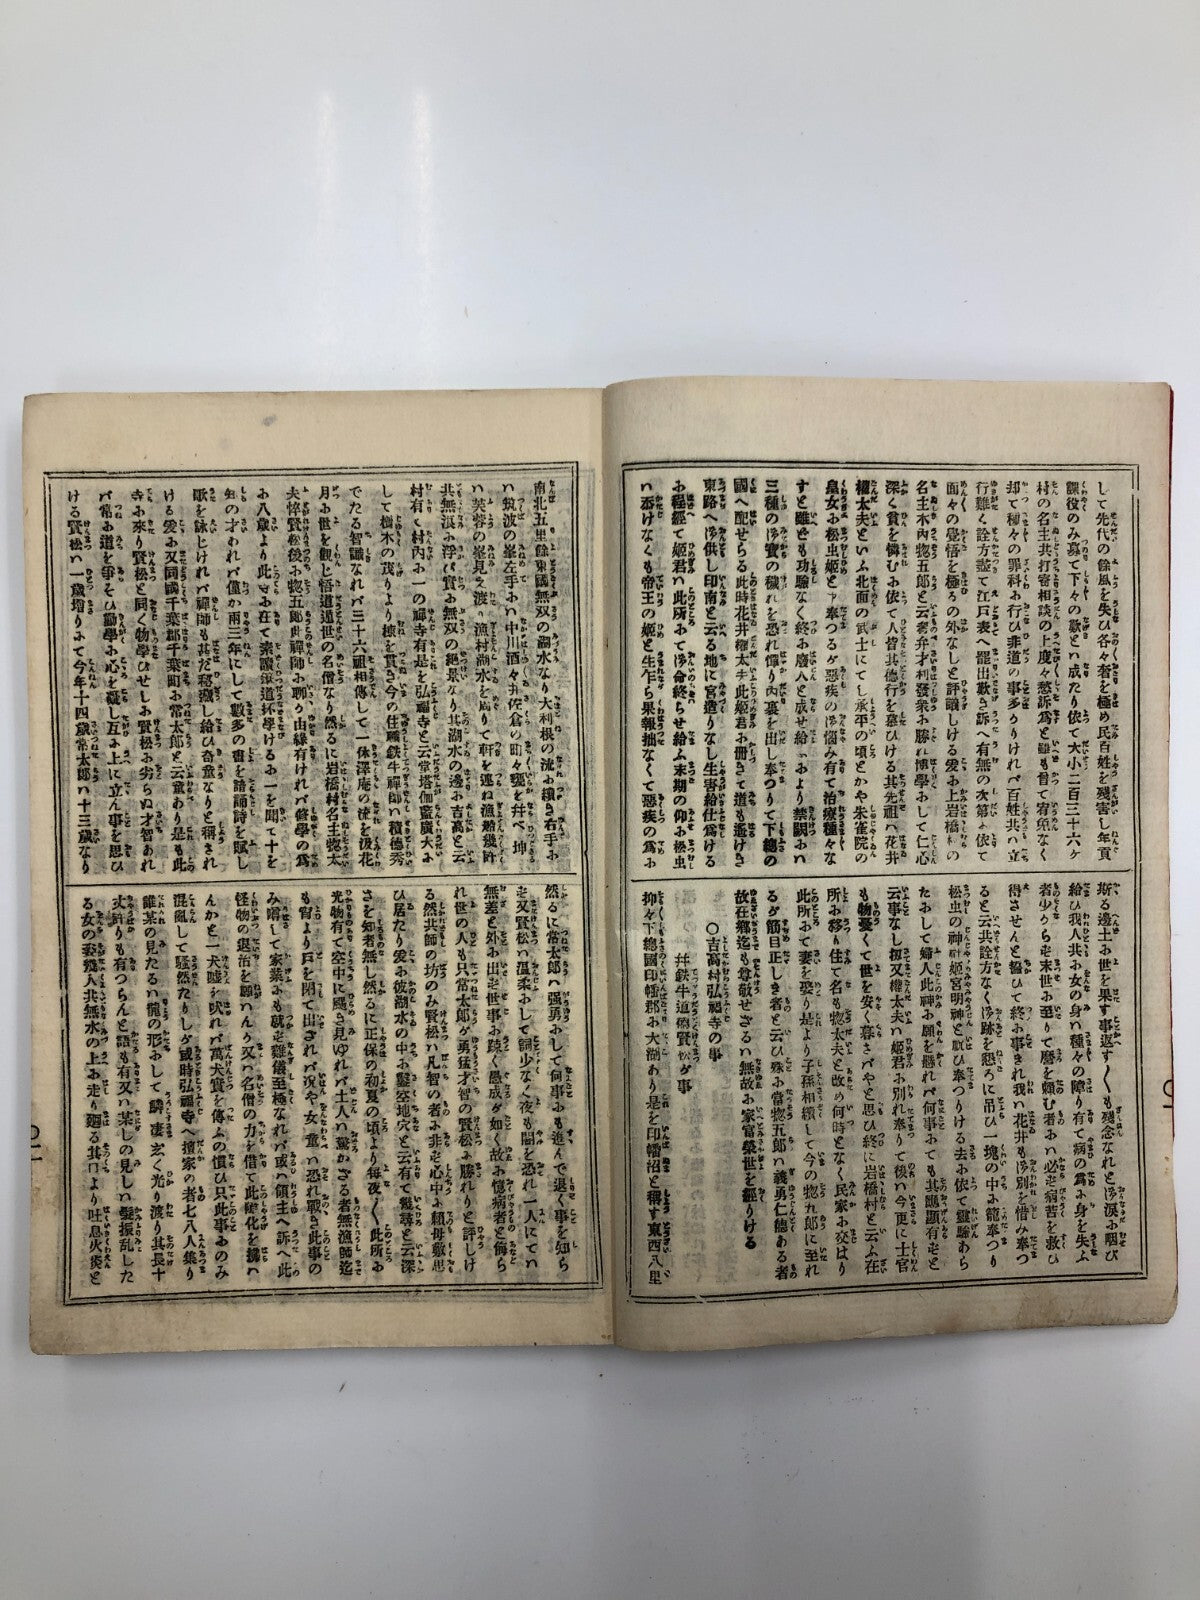 して先代の餘風を失ひ各々奢を極め民百姓を残害し年貢
課役のみ募て下々の歎とハ成たり依て大小二百三十六ヶ
村の名主共打寄相談の上度々愁訴爲と雖も曾て宥免なく
却て種々の罪科お行ひ非道の事多かりけれバ百姓共ハ立
行難く詮方盡て江戸表へ罷出歎き訴へ有無の次第ふ依て
面々の覺悟を極るの外なしと評議しける爰お上岩橋村の
名主木内惣五郎と云者弁才利發衆お勝れ博學おして仁心
深く貧を憐むお依て人皆其德行を慕ひける其先祖ハ花井
權太夫といふ北面の武士にてし承平の頃とかや朱雀院の
皇女お松虫姫と奉つるが惡疾の御悩み有て治療種々な
すと雖も功驗なく終お廢人と成せ給ふおより禁闕おハ
三種の御寶の穢れを恐れ憚り内裏を出し奉つりて下總の
國へ配せらる此時花井權太夫此姫君お冊きて道も遙けき
東路へ御供し印南と云る地に宮造りなし生害給仕爲ける
お程經て姫君ハ此所おて御命終らせ給ふ末期の仰お松虫
ハ忝けなくも帝王の姫と生乍ら果報拙なくて惡疾の爲お
斯る邊土お世を果す事返す〱も残念なれと御涙お咽び
給ひ我人共お女の身ハ種々の障り有て病の爲お身を失ふ
者少からず末世お至りて麿を賴む者おハ必ず病苦を救ひ
得させんと誓ひて終お事きれ我ハ花井も御別を惜み奉つ
ると云共詮方なく御跡を懇ろに吊ひ一塊の中お籠奉つり
松虫の神姫宮明神と祝ひ奉つりける去お依て靈驗あら
たおして婦人此神お願を懸れバ何事おても其應顯有ずと
云事なし扨又權太夫ハ姫君お別れ奉りて後ハ今更に士官
も物憂くて世を安く暮さバやと思ひ終に岩橋村と云ふ在
所お移り住て名も惣太夫と改め何時となく民家お交はり
此所おて妻を娶り是より子孫相續して今の惣五郎に至れ
るが筋目正しき者と云ひ殊お當惣五郎ハ義勇仁德ある者
故在郷迄も尊敬せざるハ無故お家富榮世を經りける
〇吉高村弘福寺の事
并鉄牛道德賢松が事
抑々下總國印幡郡お大湖あり是を印幡沼と稱す東西八里
南北五里餘東國無双の湖水なり大利根の流お續き右手お
ハ筑波の峯左手おハ中川酒々井佐倉の町々甍を并べ坤
ハ芙蓉の峯見え渡ハ漁村湖水を周りて軒を連ね漁船幾許
共無浪お浮バ實お無双の絶景なり其湖水の邊お吉萬と云
村有て村内お一の禪寺有是を弘福寺と云堂塔伽藍廣大お
して樹木の茂りより棟を貫き今の住職鉄牛禪師ハ積德秀
でたる智識なれバ三十六祖相傳して一休澤庵の流を汲花
月お世を觀じ悟道遁世の名僧なり然るに岩橋村名主惣太
夫悴賢松後お惣五郎此禪師お聊か由緣有けれバ修學の爲
お八歳より此寺お在て素讀筆道抔學けるお一を聞て十を
知の才われバ僅か兩三年にして數多の書を諳誦詩を賦し
歌を詠じけれバ禪師も甚だ秘藏し給ひ奇童なりと稱され
ける爰お又同國千葉郡千葉町お常太郎と云童あり是も此
寺お來り賢松と同く物學びせしお賢松お劣らぬ才智あれ
バ常お道を爭そひ勤學お心を礙ひ互お上に立ん事を思ひ
ける賢松ハ一歳増りお て今年十四歳常太郎ハ十三歳なり
然るに常太郎ハ强勇おして何事お も進んで退く事を知ら
ず又賢松ハ温柔おして詞少なく夜も闇を恐れ一人にてハ
無差と外お出ず世事お疎く愚成が如く故お憶病者と侮ら
れ世の人も只常太郎が勇猛才智の賢松お勝れりと評しけ
る然共師の坊のみ賢松ハ凡智の者お非ずと心中お賴母敷思
ひ居たり爰お彼湖水の中お鑿空地穴と云有て幾尋と云深
さを知者無し然るに正保の初夏の頃より毎夜〱此所お
光物有て空中に颺き見ゆれバ土人ハ驚かざる者無漁師迄
も宵より戸を閉て出されバ况や女童ハ恐れ戰き此事の
み噂して家業お も就ず難儀至極なれバ或ハ領主へ訴へ此
怪物の退治を願ハんり又ハ名僧の力を借て此變化を攘ハ
んかと一犬嘘を吠れバ萬犬實を傳ふの慣ひ只此事お のみ
混亂して騷然たりしが或時弘福寺へ檀家の者七八人集り
誰某の見たるハ龍の形おして鱗凄まじく光り渡り其長十
丈許りも有つらんと語も有又ハ某しの見しハ髮振乱した
る女の姿幾人共無水の上お走り廻る其口より吐息火炎と